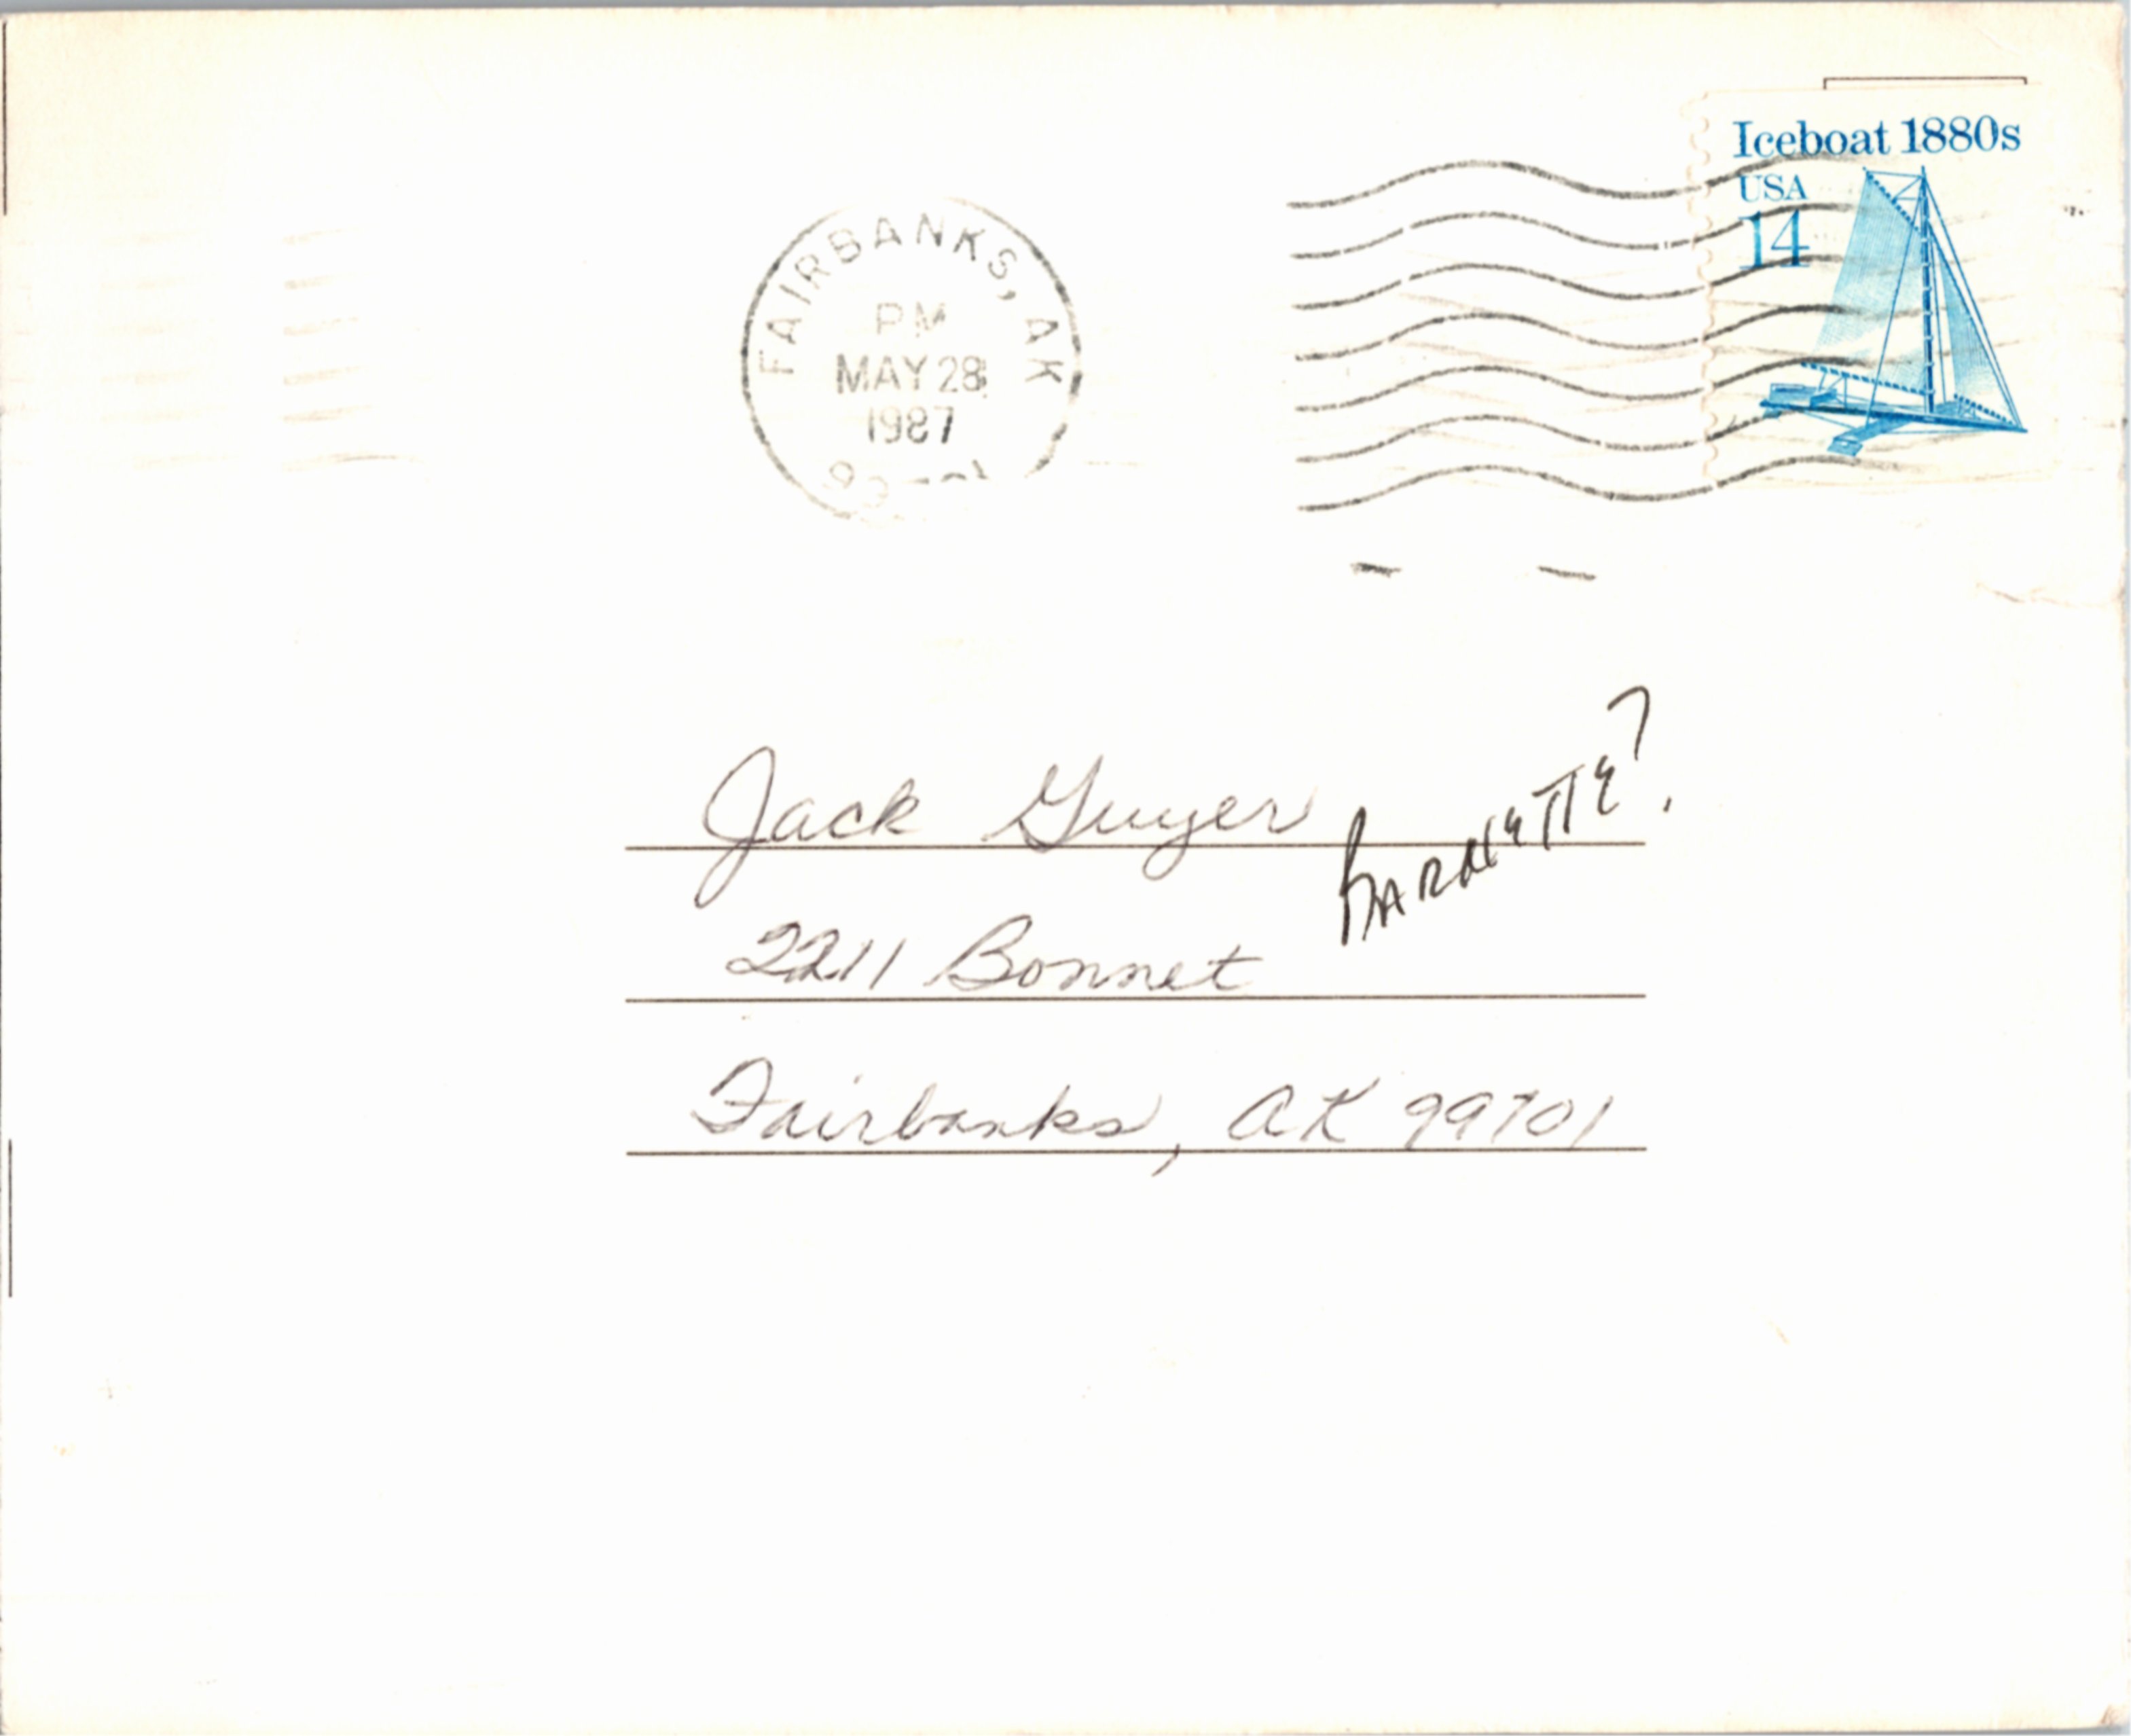 Iceboat 1880s
USA
14
FAIRBANKS, AK
PM
MAY 28
1987
Jack Guyer
BARNETTE?
2211 Bonnet
Fairbanks, AK 99701